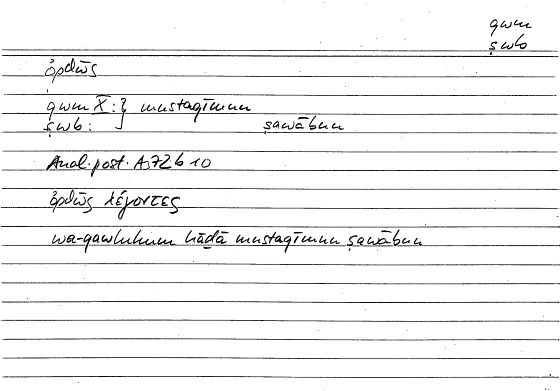 qwm
ṣwb
ὀρθῶς
qwm X̅ : } mustaqīmun
ṣwb : ṣawābun
Anal. post. A, 72 b 10
ὀρθῶς λέγοντες
wa-qawluhum hāḏā mustaqīmun ṣawābun